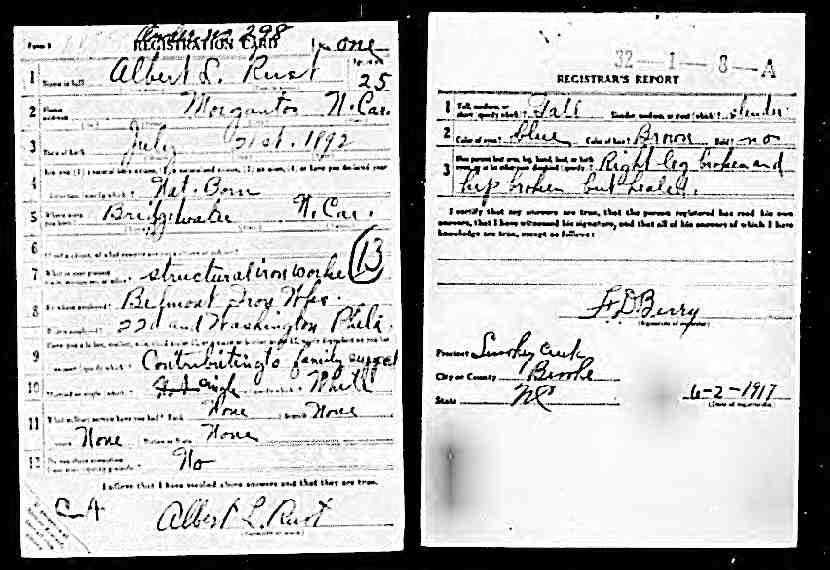 298
Form 1 REGISTRATION CARD No. one
1 Name in full Albert L. Rust Age, in yrs. 25
2 Home address Morganton N. Car.
3 Date of birth July 21st. 1892
4 Nat. Born
5 Where were you born? Bridgewater N. Car.
6
7 What is your present structural iron worke 13
8 By whom employed? Belmont Iron Wks.
Where employed? 22d and Washington Phila.
9 Contributing to family support
10 Married or single (which)? single White
11 What military service have you had? Rank None branch None
years None Nation or State None
12 Do you claim exemption No
I affirm that I have verified above answers and that they are true.
C-A
Albert L. Rust
32-1-8-A
REGISTRAR'S REPORT
1 Tall, medium, or short (specify which)? Tall Slender, medium, or stout (which)? slender
2 Color of eyes? blue Color of hair? Brown Bald? no
3 Has person lost arm, leg, hand, foot, or both Right leg broken and
hip broken but healed.
I certify that my answers are true, that the person registered has read his own
answers, that I have witnessed his signature, and that all of his answers of which I have
knowledge are true, except as follows:
F. D. Berry
(Signature of registrar)
Precinct Smokey Creek
City or County Burke
State NC 6-2-1917
(Date of registration)